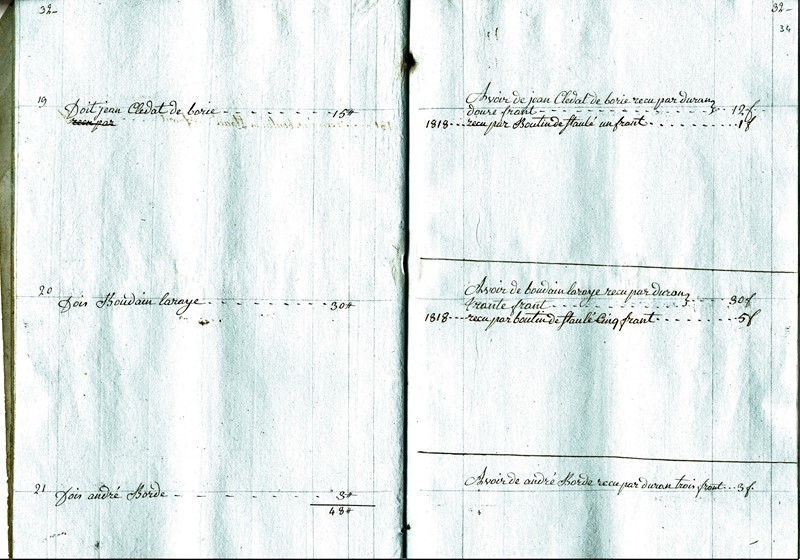 32-
19 Doit jean Cledat de borie 15#
recu par
20 Dois Boudain laraye 30#
21 Dois andré Borde 3#
48#
32-
34
Avoir de jean Cledat de borie recu par duran
doure frant 12f
1818 recu par Boutin de un frant 1f
Avoir de boudain laraye recu par duran
trante frant 30f
1818 recu par boutin de Cinq frant 5f
Avoir de andré Borde recu par duran trois frant 3f